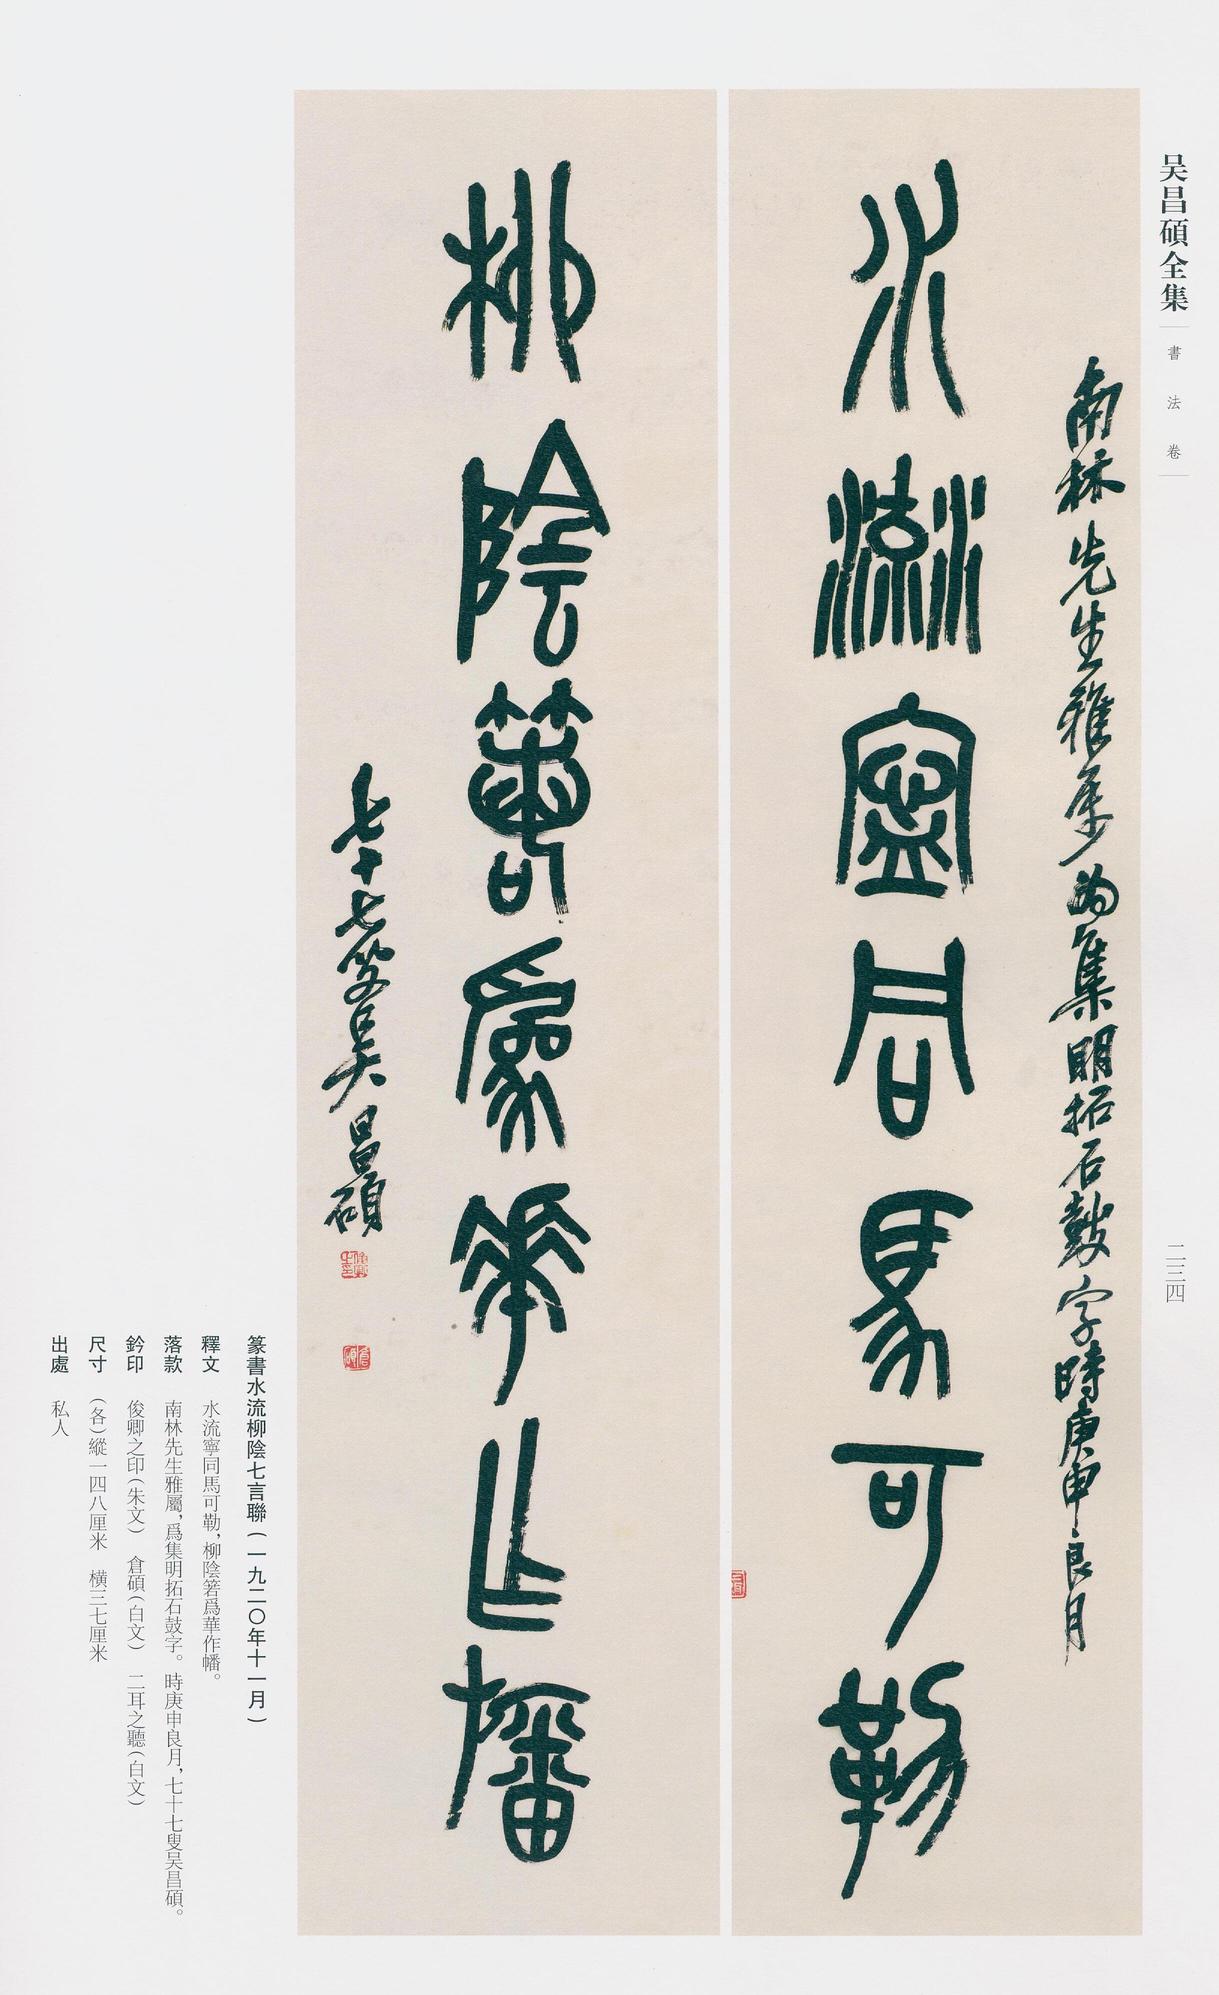 吴昌碩全集
書法卷
二三四
南林先生雅屬為集明拓石鼓字時庚申良月
水流寧同馬可勒
柳陰箬爲華作幡
七十七叟吴昌碩
篆書水流柳陰七言聯（一九二〇年十一月）
釋文　水流寧同馬可勒，柳陰箬爲華作幡。
落款　南林先生雅屬，爲集明拓石鼓字。時庚申良月，七十七叟吴昌碩。
鈐印　俊卿之印（朱文）　倉碩（白文）　二耳之聽（白文）
尺寸　（各）縱一四八厘米　橫三七厘米
出處　私人